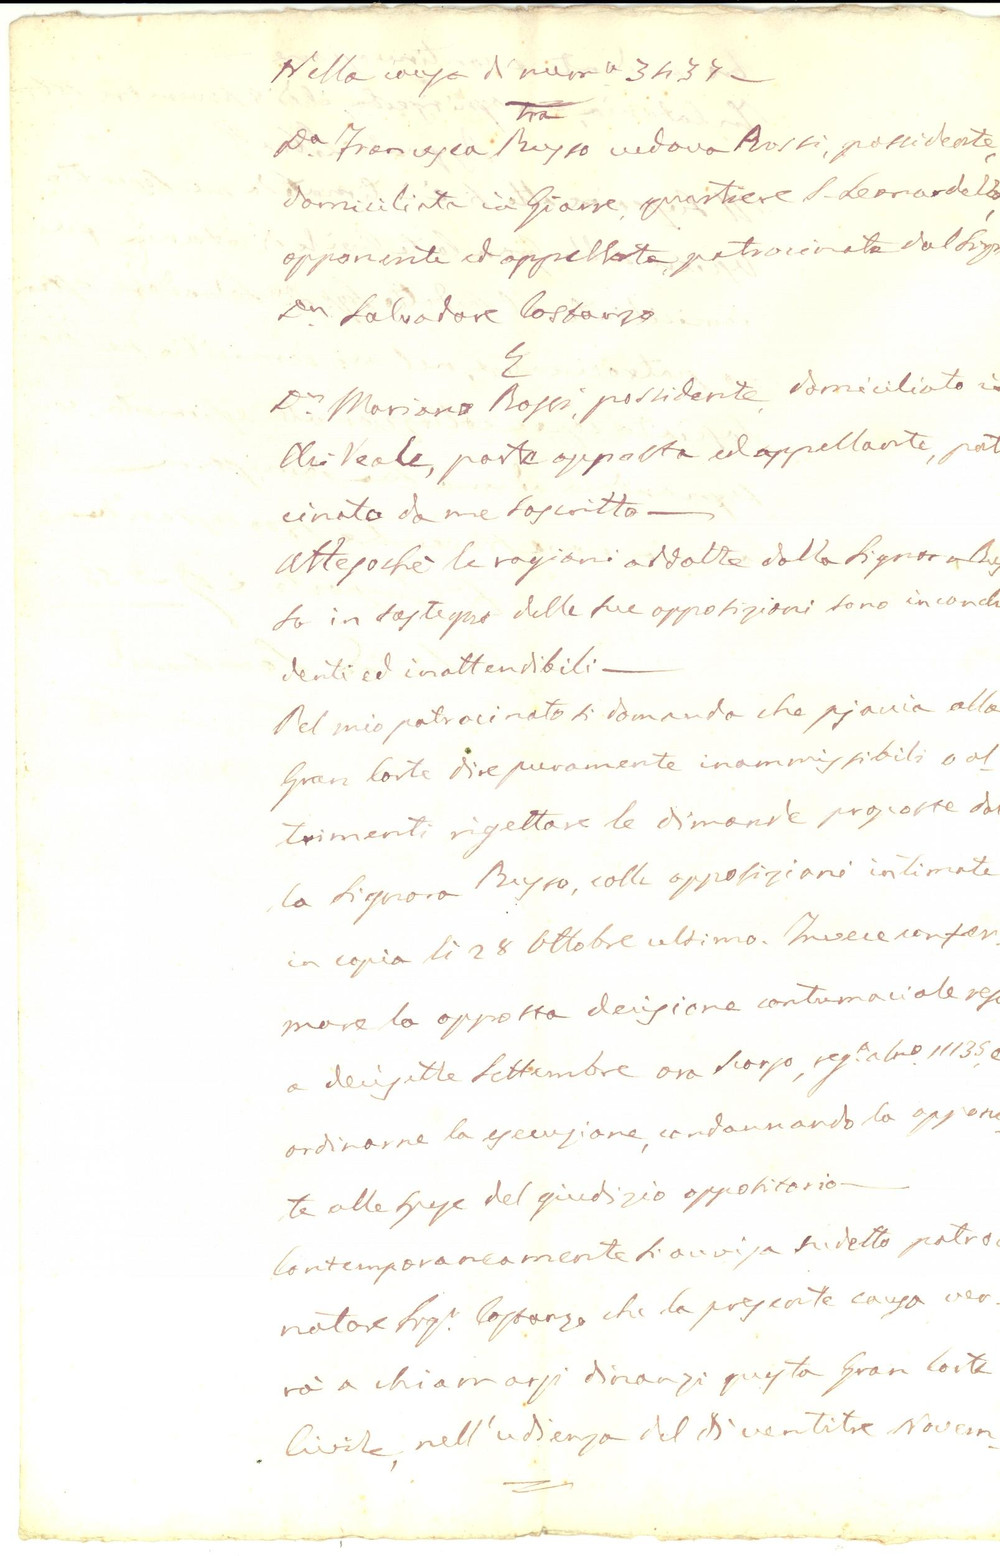 Nella causa di num.o 3434
tra
D.a Francesca Russo vedova Rossi, possidente,
domiciliata in Giarre, quartiere S. Leonardello,
opponente ed appellata, patrocinata dal Sig.
D.n Salvadore Costanzo
E
D.n Mariano Rossi, possidente, domiciliato in
Aci Reale, parte opposta ed appellante, pat
cinato da me soscritto
Attesochè le ragioni addotte dalla Signora Rus
so in sostegno delle sue opposizioni sono inconclu
denti ed inattendibili
Pel mio patrocinato si domanda che piaccia alla
Gran Corte dire puramente inammissibili o al-
trimenti rigettare le dimande proposte dal
la Signora Russo, colle opposizioni intimate
in copia li 28 Ottobre ultimo. Invece confer-
mare la opposta decisione contumaciale resa
a decisette Settembre ora scorso, reg.a al n.o 11135, e
ordinarne la esecuzione, condannando la oppone
te alle spese del giudizio oppositorio
Contemporaneamente si avvisa sudetto patroc
natore Sig.r Costanzo che la presente causa ver-
rà a chiamarsi dinanzi questa Gran Corte
Civile, nell'udienza del dì ventitre Novem-